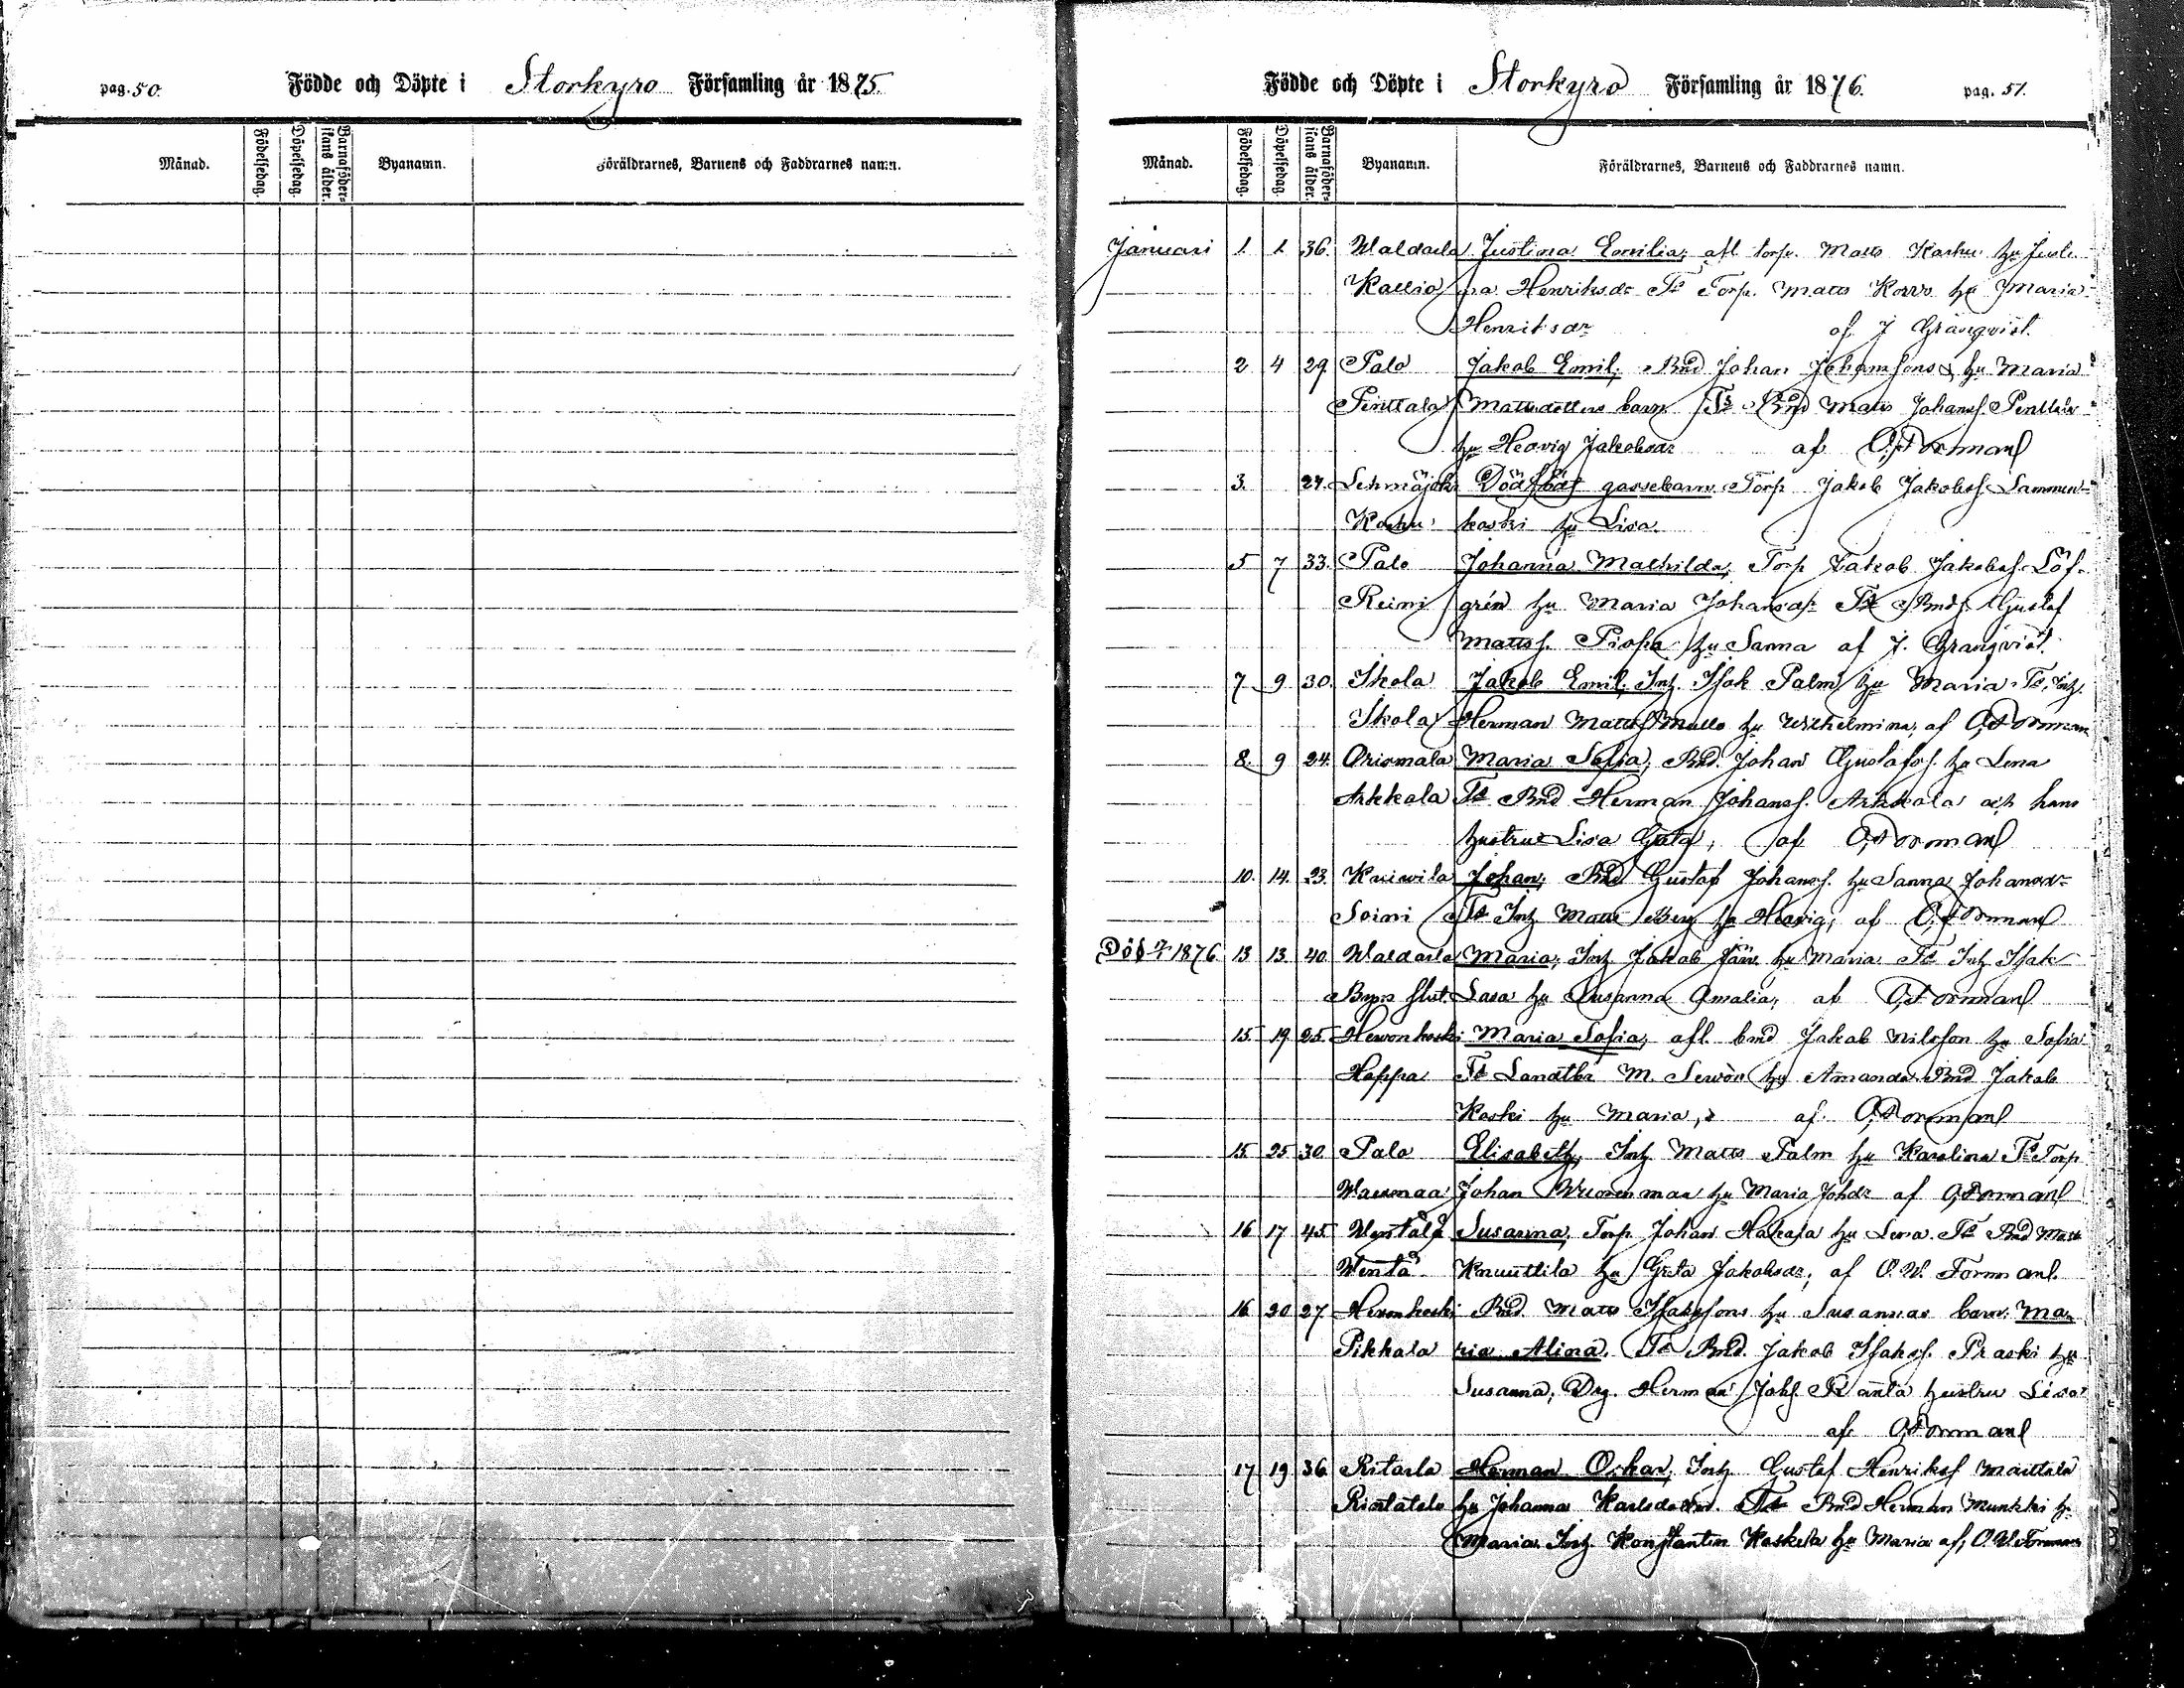 pag. 50. Födde och Döpte i Storkyro Församling år 1875.
Månad. Födelsedag. Döpelsedag. Barnaföderskans ålder. Byanamn. Föräldrarnes, Barnens och Faddrarnes namn.
Födde och Döpte i Storkyro Församling år 1876. pag. 51.
Månad. Födelsedag. Döpelsedag. Barnaföderskans ålder. Byanamn. Föräldrarnes, Barnens och Faddrarnes namn.
Januari 1. 1. 36. Waldarla Justina Emilia, afl. torp. Matts Karhu hu Justi-
Kallio na Henriksdr Ts Torp. Matts Korvo hu Maria
Henriksdr af J Granqvist.
2 4 29 Palo Jakob Emil, Bnd Johan Johanssons & hu Maria
Penttala Mattsdotters barn Ts Bnd Matts Johanss. Penttala
hu Hedvig Jakobsdr af O.W. Forsman
3. 27. Lehmäjoki Dödfödt gossebarn Torp Jakob Jakobss. Lammin-
Karhu koski hu Lisa.
5 7 33. Palo Johanna Mathilda, Torp Jakob Jakobss. Löf-
Reini grén hu Maria Johansdr Ts Bnds. Gustaf
Mattss. Piopa hu Sanna af J. Granqvist.
7 9 30. Ikola Jakob Emil, Inh. Isak Palm hu Maria Ts, Inh.
Ikola Herman Mattss Mullo hu Wilhelmina, af O.W. Forsman
8. 9 24. Orismala Maria Sofia, Bnd. Johan Gustafss. hu Lena
Arkkola Ts Bnd Herman Johanss. Arkkola och hans
hustru Lisa Greta, af O.W. Forsman
10. 14. 23. Kuivila Johan, Bnd Gustaf Johanss. hu Sanna Johansdr
Soini Ts Inh Matts Berg hu Hedvig, af O.W. Forsman
Död 1876 13 13. 40. Waldarla Maria, Inh Jakob hu Maria Ts Inh Isak
Byns slut. Sasa hu Susanna Amalia, af O.W. Forsman
15 19 25. Hevonkoski Maria Sofia, afl. bnd Jakob Nilsson hu Sofia
Heppa Ts Landtbr M. hu Amanda Bnd Jakob
Koski hu Maria, af O.W. Forsman
15 25 30. Palo Elisabeth, Inh Matts Palm hu Karolina Ts Torp
Johan Wuorenmaa hu Maria Johdr af O.W. Forsman
16 17 45 Wentälä Susanna, Torp. Johan Hakala hu Lena. Ts Bnd Matts
Wentä Knuuttila hu Greta Jakobsdr, af O.W. Forsman.
16 20 27. Hevonkoski Bnd. Matts Isakssons hu Susannas barn: Ma-
Pikkala ria Alina. Ts Bnd. Jakob Isakss. Praski hu
Susanna, Drg. Herman Johs. Ranta hustru Lisa
af O.W. Forsman
17 19 36 Ritarla Herman Oskar, Inh Gustaf Henrikss Mattila
hu Johanna Karlsdotter. Ts Bnd Herman Munkki hu
Maria Inh. Konstantin Koskela hu Maria af, O.W. Forsman